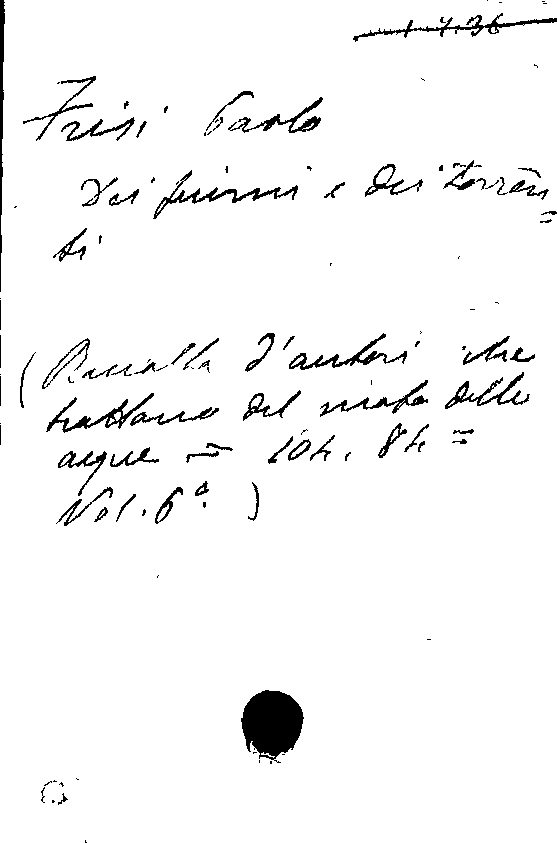 1.7.36
Frisi Paolo
Dei fiumi e dei torren=
ti
(Raccolta d'autori che
trattano del moto delle
acque = 104. 84 =
Vol. 6º.)